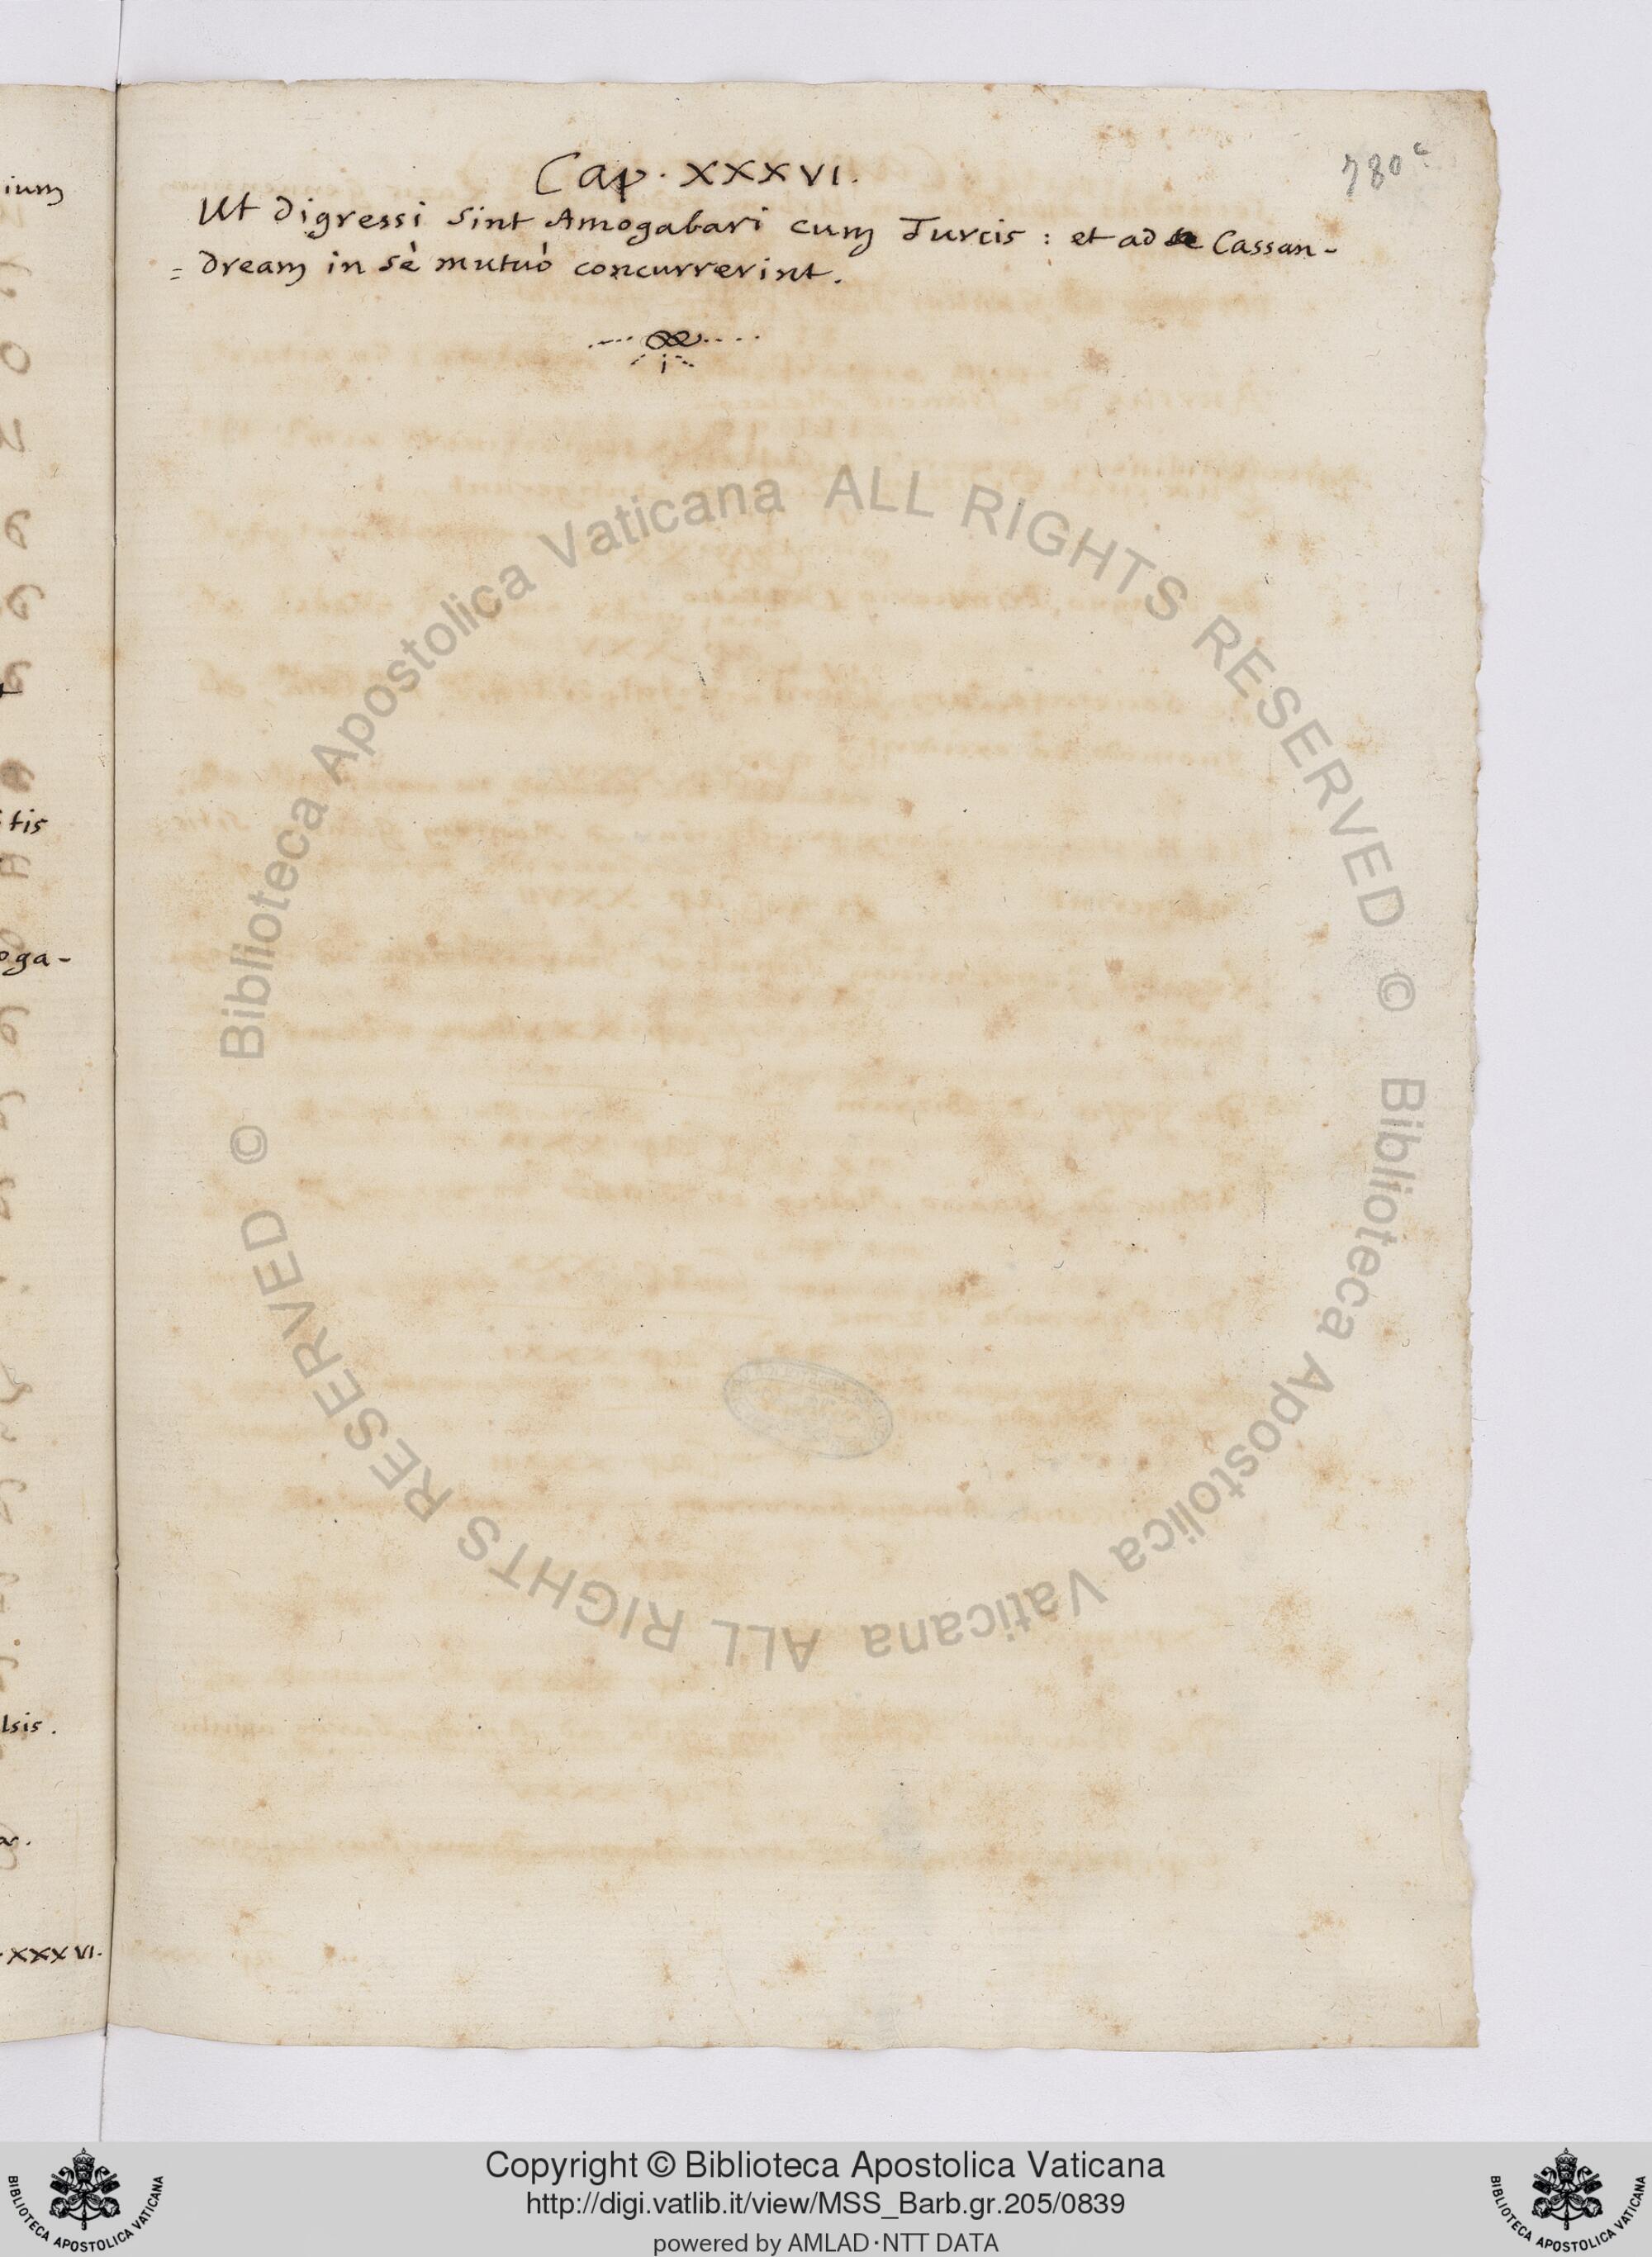 780 c
Cap. XXXVI.
Ut digressi sint Amogabari cum Turcis : et ad Cassan-
= dream in sè mutuò concurrerint.
ium
tis
oga-
lsis.
. XXXVI.
© Biblioteca Apostolica Vaticana ALL RIGHTS RESERVED
© Biblioteca Apostolica Vaticana ALL RIGHTS RESERVED
Copyright © Biblioteca Apostolica Vaticana
http://digi.vatlib.it/view/MSS_Barb.gr.205/0839
powered by AMLAD·NTT DATA
BIBLIOTECA APOSTOLICA VATICANA
BIBLIOTECA APOSTOLICA VATICANA